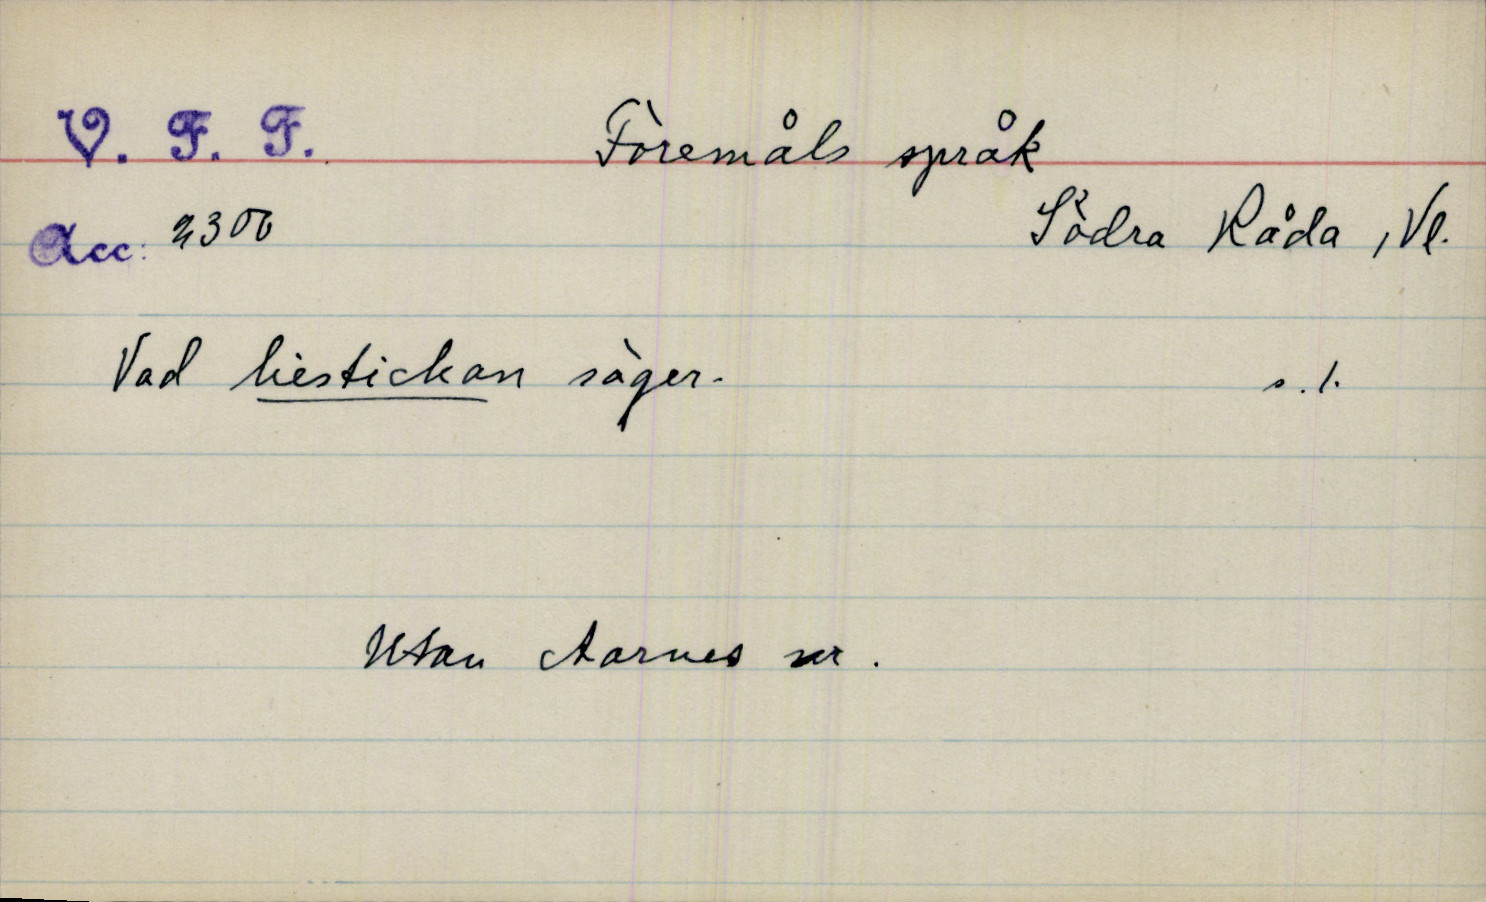 V. F. F. Föremåls språk
Acc: 2300 Södra Råda, Vl.
Vad liestickan säger. s. 1.
Utan Aarnes nr.